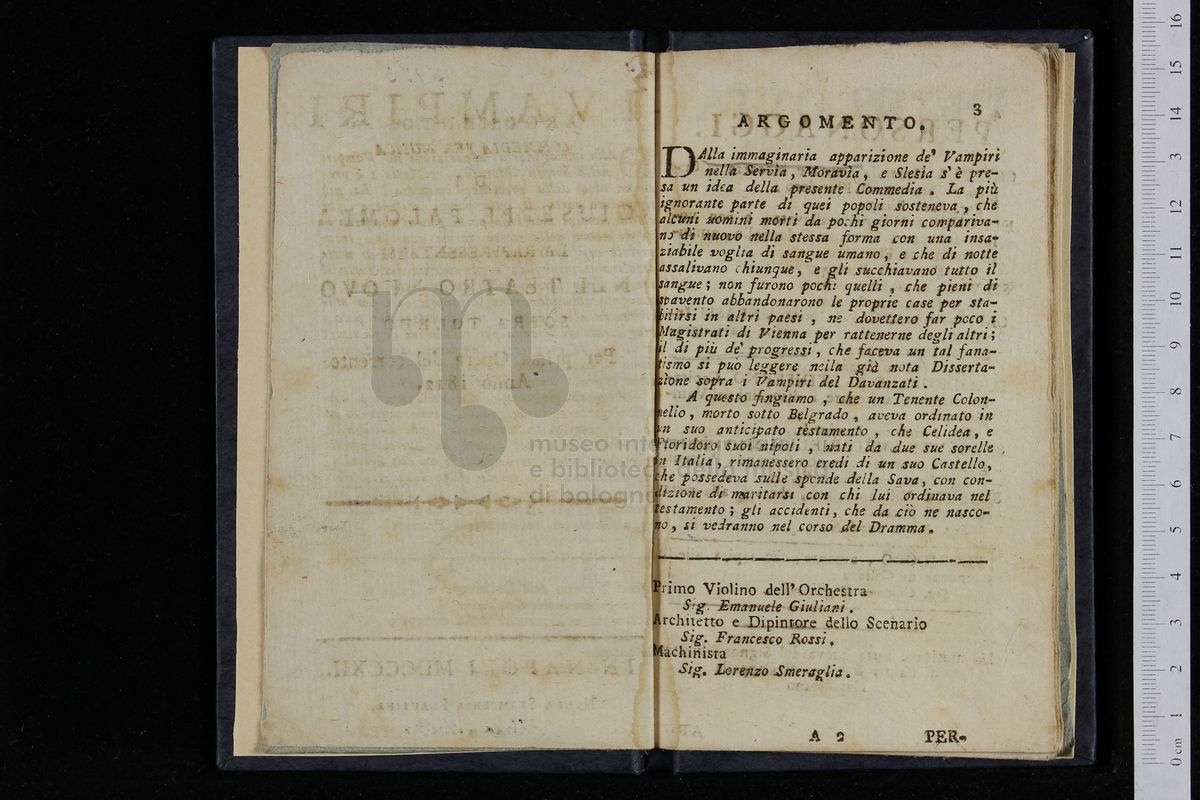 3
ARGOMENTO.
DAlla immaginaria apparizione de' Vampiri
nella Servia, Moravia, e Slesia s'è pre-
sa un idea della presente Commedia. La più
ignorante parte di quei popoli sosteneva, che
alcuni uomini morti da pochi giorni compariva-
no di nuovo nella stessa forma con una insa-
ziabile voglia di sangue umano, e che di notte
assalivano chiunque, e gli succhiavano tutto il
sangue; non furono pochi quelli, che pieni di
spavento abbandonarono le proprie case per sta-
bilirsi in altri paesi, ne dovettero far poco i
Magistrati di Vienna per rattenerne degli altri;
il di più de' progressi, che faceva un tal fana-
tismo si può leggere nella già nota Disserta-
zione sopra i Vampiri del Davanzati.
A questo fingiamo, che un Tenente Colon-
nello, morto sotto Belgrado, aveva ordinato in
un suo anticipato testamento, che Celidea, e
Floridoro suoi nipoti, nati da due sue sorelle
in Italia, rimanessero eredi di un suo Castello,
che possedeva sulle sponde della Sava, con con-
dizione di maritarsi con chi lui ordinava nel
testamento; gli accidenti, che da ciò ne nasco-
no, si vedranno nel corso del Dramma.
Primo Violino dell' Orchestra
Sig. Emanuele Giuliani.
Architetto e Dipintore dello Scenario
Sig. Francesco Rossi.
Machinista
Sig. Lorenzo Smeraglia.
A 2 PER-
museo inte
e bibliotec
di bologna
0 cm 1 2 3 4 5 6 7 8 9 10 11 12 13 14 15 16